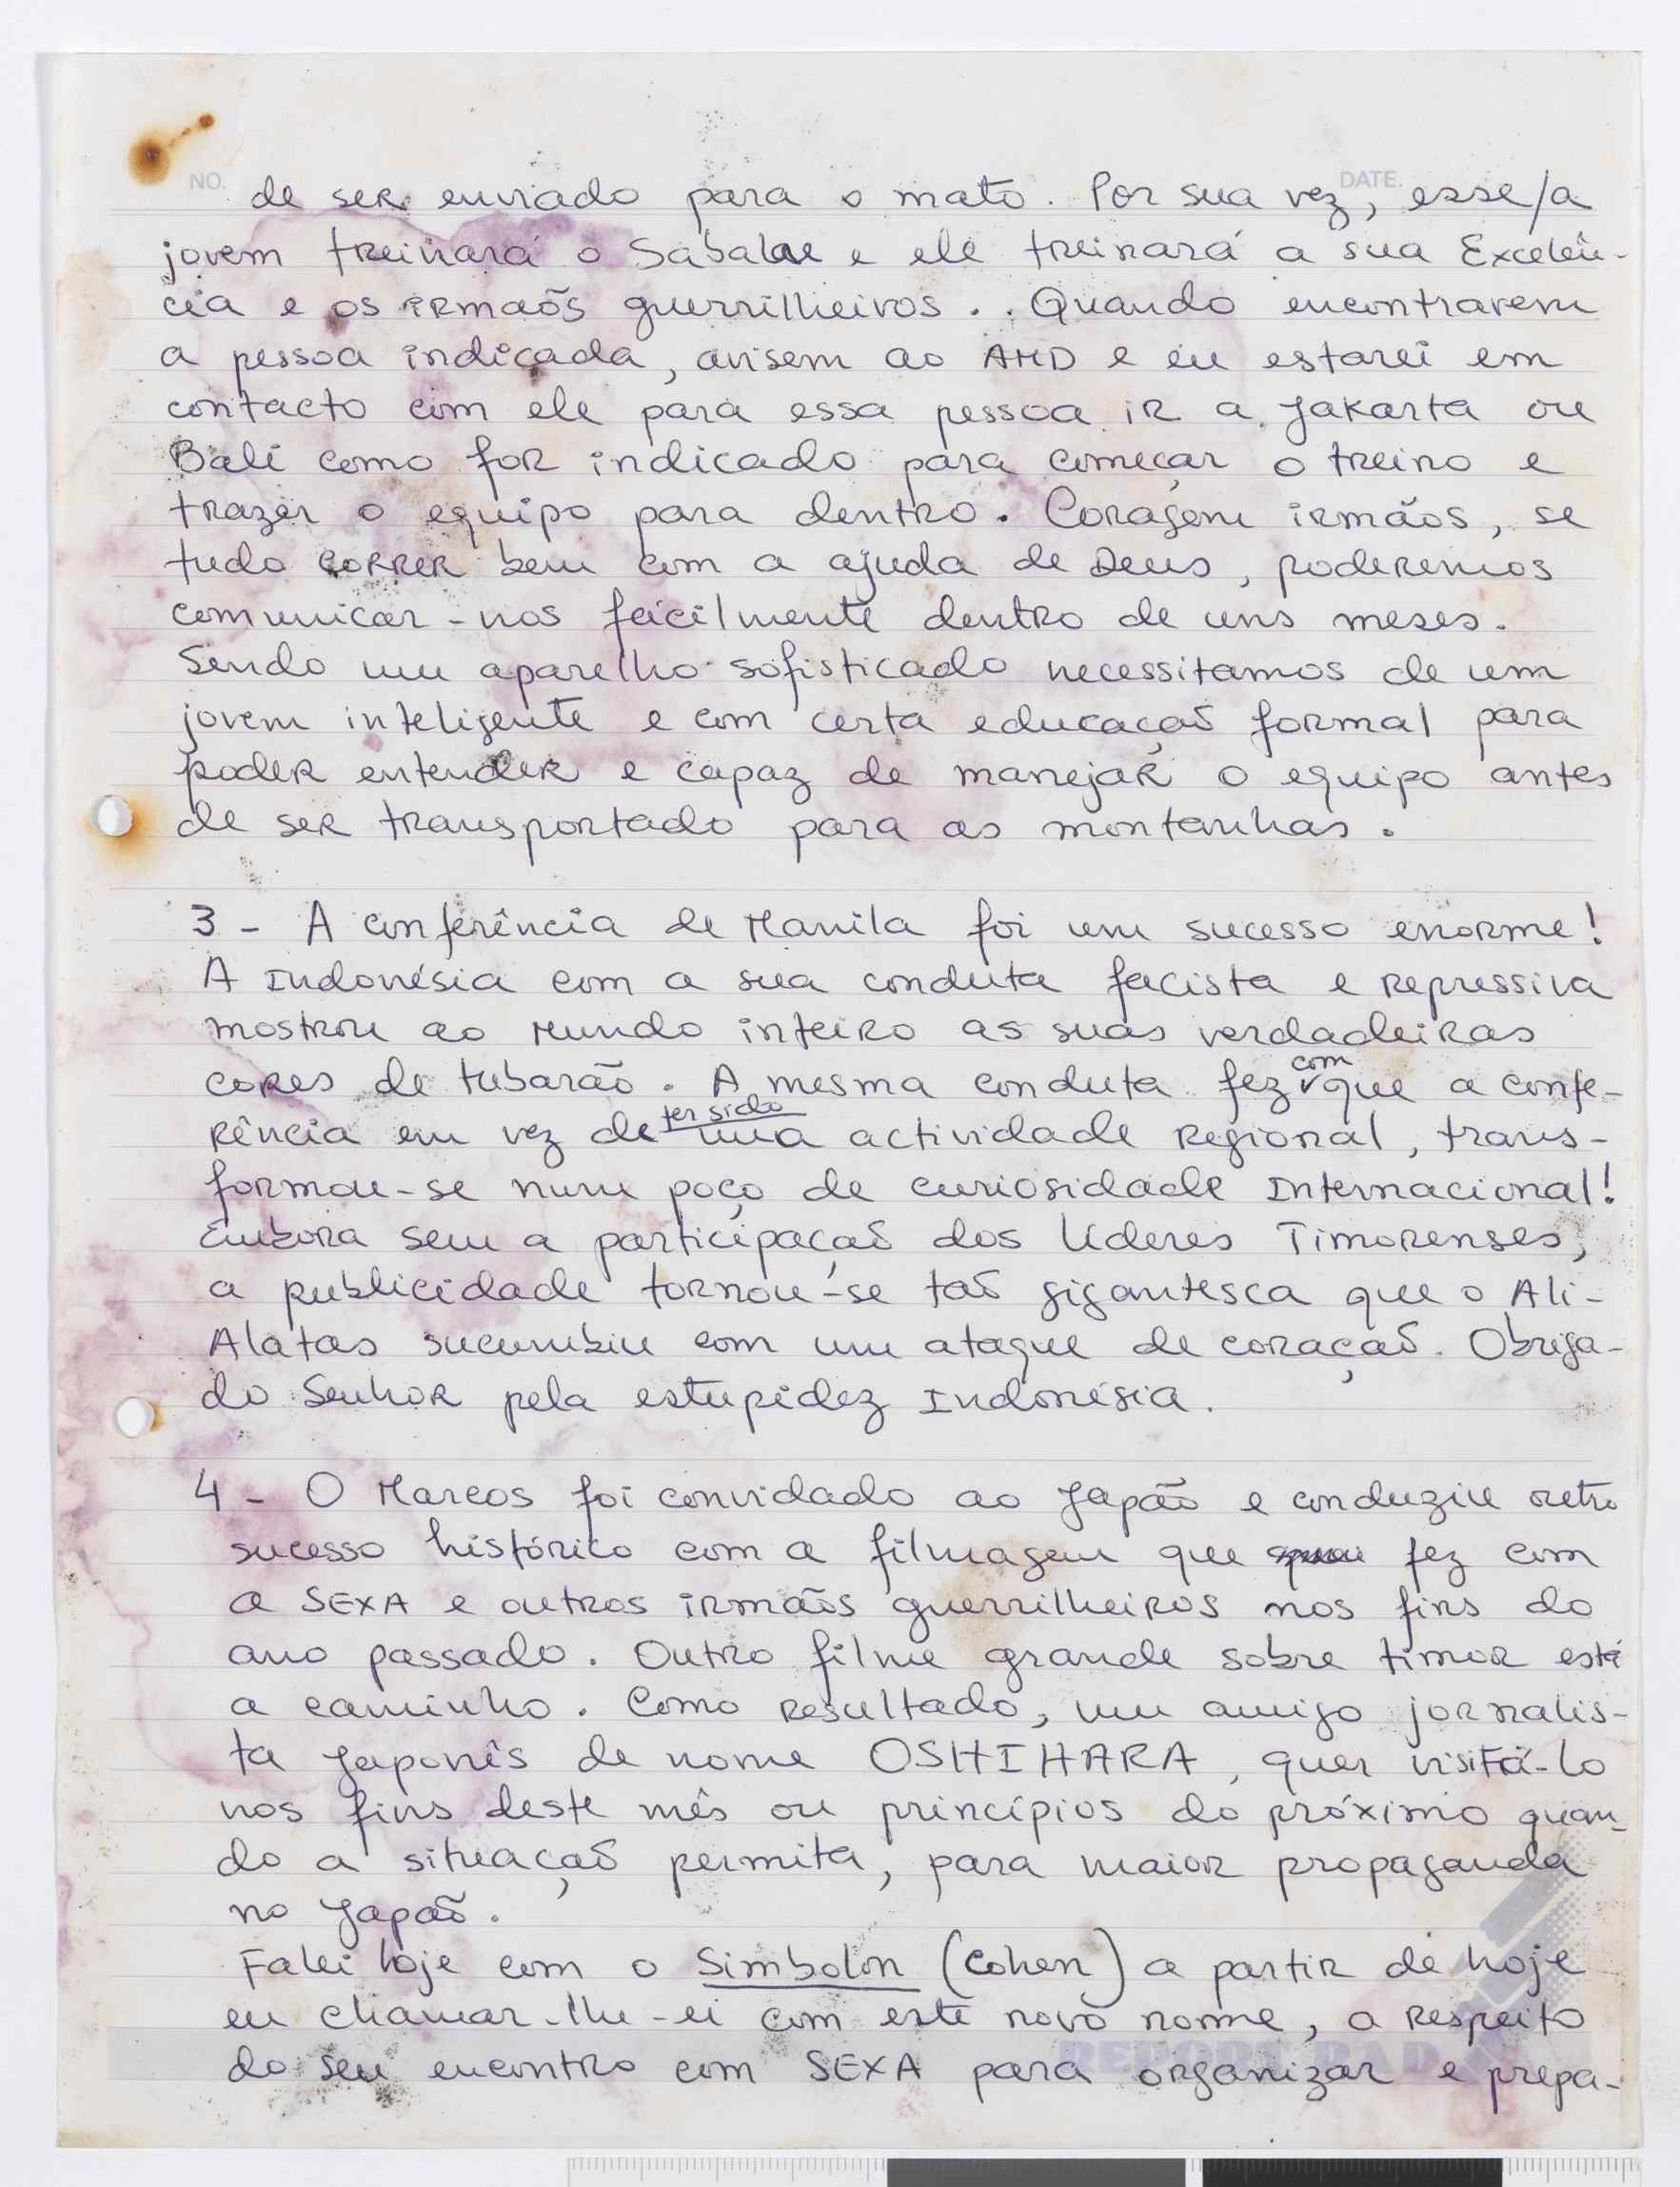 NO. DATE.
de ser enviado para o mato. Por sua vez, esse/a
jovem treinará o Sabalae e ele treinará a sua Excelên-
cia e os irmaõs guerrilheiros.. Quando encontrarem
a pessoa indicada, avisem ao AMD e eu estarei em
contacto com ele para essa pessoa ir a Jakarta ou
Bali como for indicado para começar o treino e
trazer o equipo para dentro. Coragem irmãos, se
tudo correr bem com a ajuda de Deus, poderemos
comunicar-nos fácilmente dentro de uns meses.
Sendo um aparelho sofisticado necessitamos de um
jovem inteligente e com certa educaçaõ formal para
poder entender e capaz de manejar o equipo antes
de ser transportado para as montanhas.
3 - A conferência de Manila foi um sucesso enorme!
A Indonésia com a sua conduta facista e repressiva
mostrou ao Mundo inteiro as suas verdadeiras
cores de tubarão. A mesma conduta fez com que a confe-
rência em vez de ter sido uma actividade regional, trans-
formou-se num poço de curiosidade Internacional!
Embora sem a participaçaõ dos líderes Timorenses,
a publicidade tornou-se taõ gigantesca que o Ali-
Alatas sucumbiu com um ataque de coraçaõ. Obriga-
do Senhor pela estupidez Indonésia.
4 - O Marcos foi convidado ao Japão e conduziu outro
sucesso histórico com a filmagem que fez com
a SEXA e outros irmaõs guerrilheiros nos fins do
ano passado. Outro filme grande sobre timor está
a caminho. Como resultado, um amigo jornalis-
ta Japonês de nome OSHIHARA, quer visitá-lo
nos fins deste mês ou princípios do próximo quan-
do a situaçaõ permita, para maior propaganda
no Japaõ.
Falei hoje com o Simbolon (Cohen) a partir de hoje
eu chamar-lhe-ei com este novo nome, a respeito
do seu encontro com SEXA para organizar e prepa-